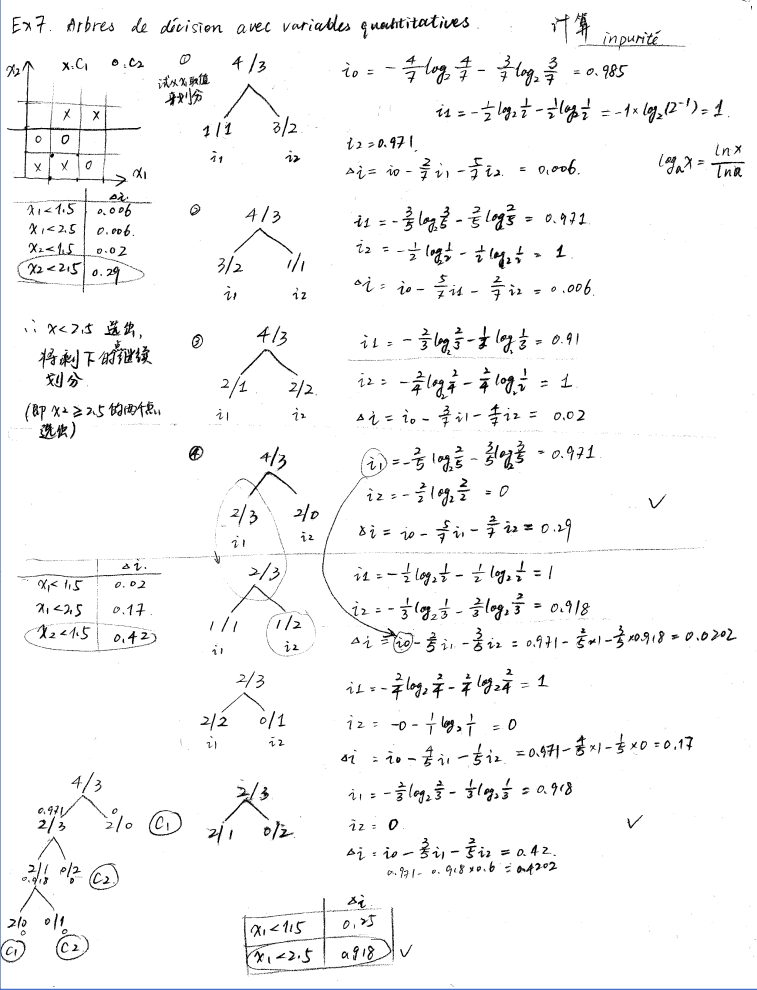 Ex7. Arbres de décision avec variables quantitatives. 计算 inpurité
x2 x:C1 o:C2
x x
o o
x x o
x1
Δi
x1<1.5 0.006
x1<2.5 0.006.
x2<1.5 0.02
x2<2.5 0.29
∴ x<2.5 选出,
将剩下的点继续
划分
(即 x2≥2.5的两个点
选出)
① 4/3
试以x1取值
来划分
1/1 3/2
i1 i2
i0 = -4/7 log2 4/7 - 3/7 log2 3/7 = 0.985
i1 = -1/2 log2 1/2 - 1/2 log2 1/2 = -1×log2(2^-1) = 1.
i2 = 0.971
Δi = i0 - 2/7 i1 - 5/7 i2 = 0.006.
loga x = ln x / ln a
② 4/3
3/2 1/1
i1 i2
i1 = -3/5 log2 3/5 - 2/5 log 2/5 = 0.971
i2 = -1/2 log2 1/2 - 1/2 log2 1/2 = 1
Δi = i0 - 5/7 i1 - 2/7 i2 = 0.006.
③ 4/3
2/1 2/2
i1 i2
i1 = -2/3 log2 2/3 - 1/3 log2 1/3 = 0.91
i2 = -2/4 log2 2/4 - 2/4 log2 1/2 = 1
Δi = i0 - 3/7 i1 - 4/7 i2 = 0.02
④ 4/3
2/3 2/0
i1 i2
i1 = -2/5 log2 2/5 - 3/5 log2 3/5 = 0.971
i2 = -2/2 log2 2/2 = 0 ✓
Δi = i0 - 5/7 i1 - 2/7 i2 = 0.29
Δi.
x1<1.5 0.02
x1<2.5 0.17.
x2<1.5 0.42
2/3
1/1 1/2
i1 i2
i1 = -1/2 log2 1/2 - 1/2 log2 1/2 = 1
i2 = -1/3 log2 1/3 - 2/3 log2 2/3 = 0.918
Δi = i0 - 2/5 i1 - 3/5 i2 = 0.971 - 2/5×1 - 3/5×0.918 = 0.0202
2/3
2/2 0/1
i1 i2
i1 = -2/4 log2 2/4 - 2/4 log2 2/4 = 1
i2 = -0 - 1/1 log2 1/1 = 0
Δi = i0 - 4/5 i1 - 1/5 i2 = 0.971 - 4/5×1 - 1/5×0 = 0.17
2/3
2/1 0/2
i1 = -2/3 log2 2/3 - 1/3 log2 1/3 = 0.918
i2 = 0 ✓
Δi = i0 - 3/5 i1 - 2/5 i2 = 0.42.
0.971 - 0.918×0.6 = 0.4202
4/3
0.971 0
2/3 2/0 C1
2/1 0/2 C2
0.918 0
2/0 0/1
0 0
C1 C2
Δi
x1<1.5 0.25
x1<2.5 0.918 ✓